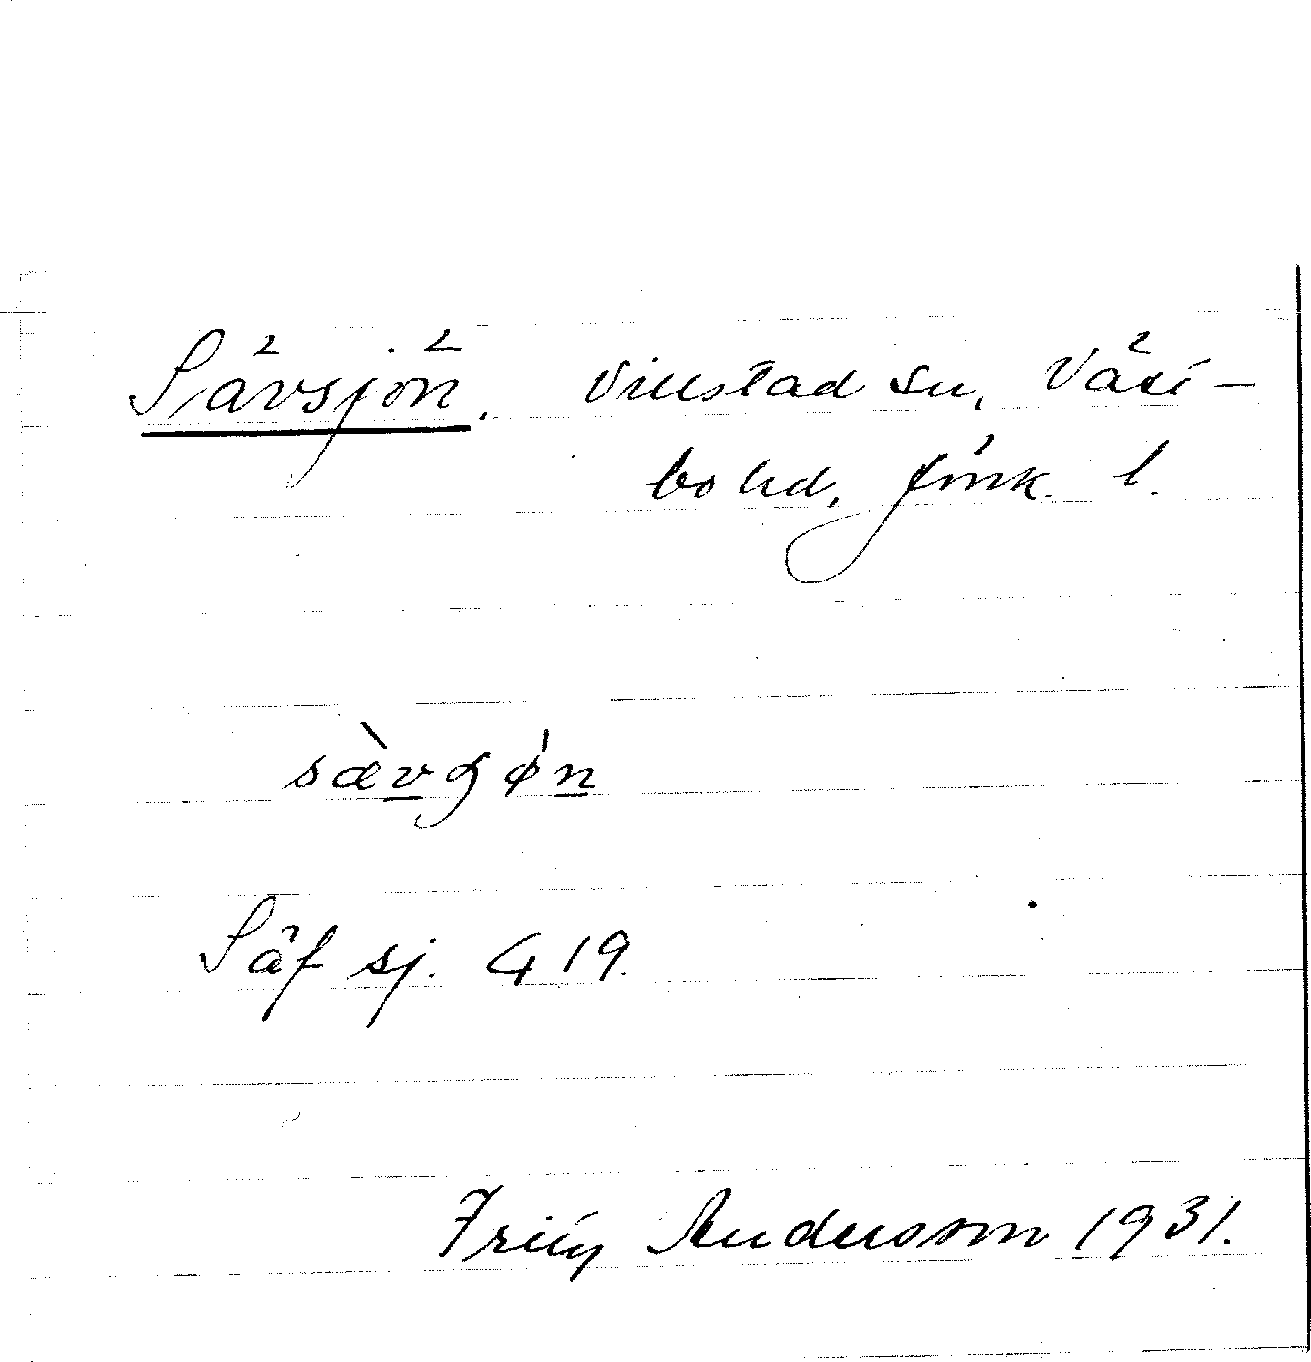 Sävsjön. Villstad sn, Väst-
bo hd, Jönk. l.
sæ̀vʃøn
Säf sj. G 19.
Andersson 1931.